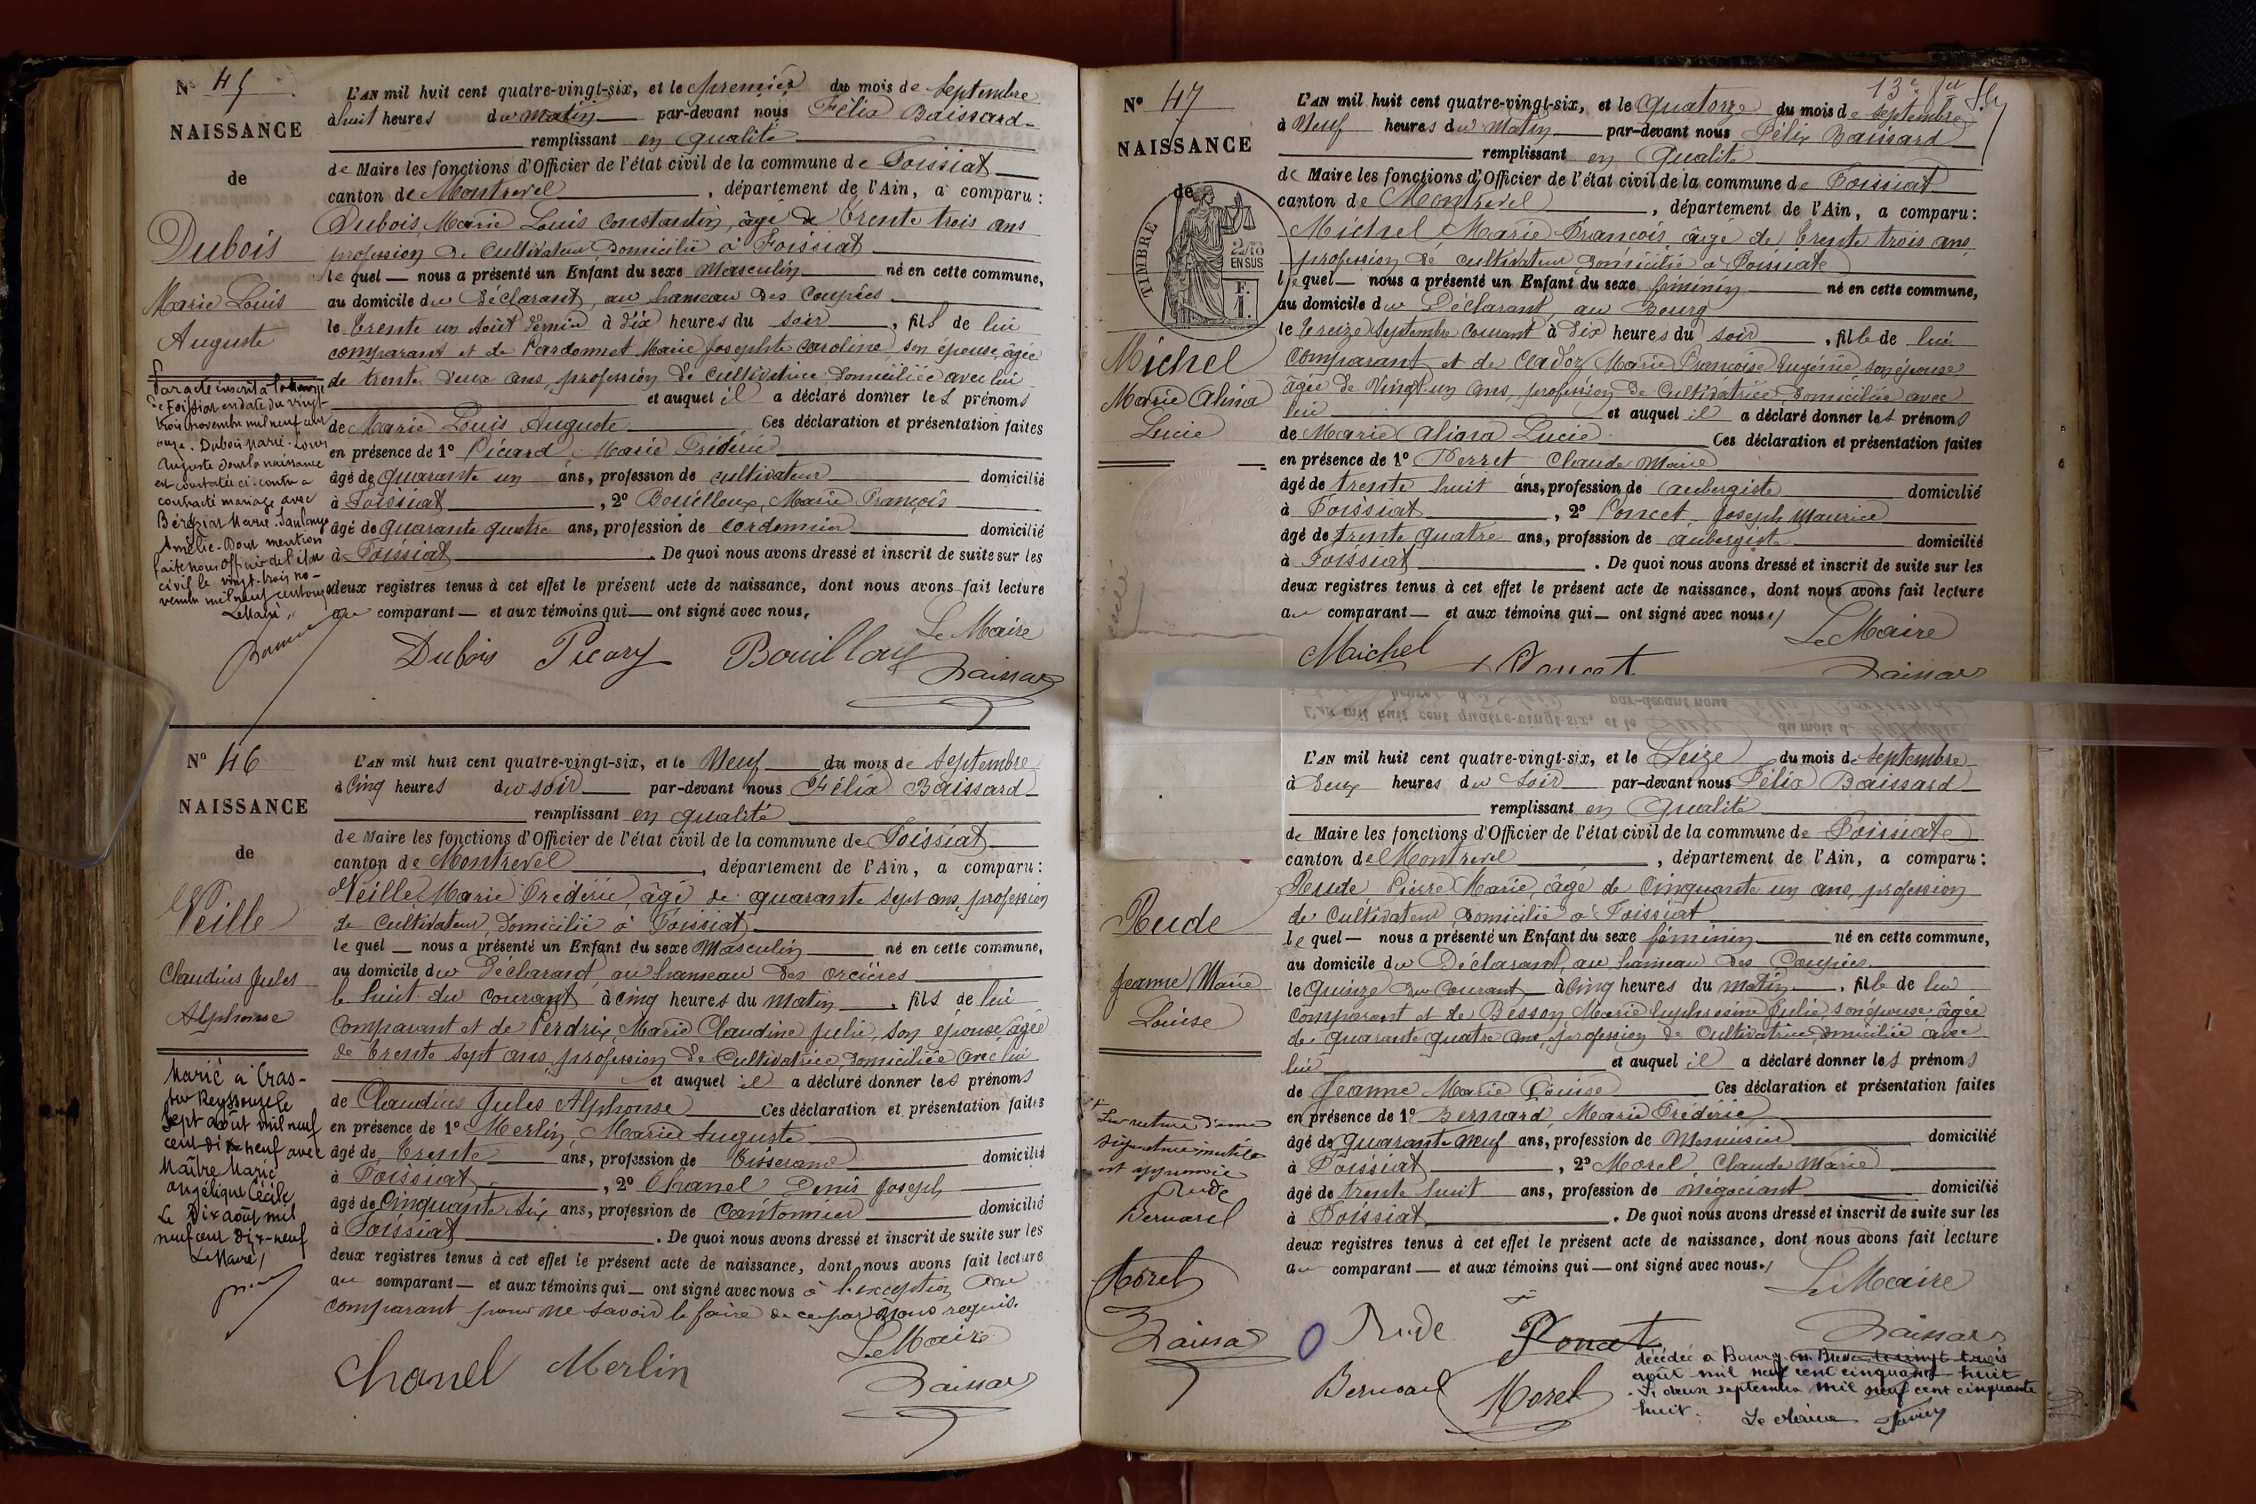 N° 45
NAISSANCE
de
Dubois
Marie Louis
Auguste
Par acte inscrit à la mairie
de Foissiat en date du vingt-
trois novembre mil neuf cent
onze. Dubois Marie-Louis
Auguste dont la naissance
est constatée ci-contre a
contracté mariage avec
Marie
Amélie. Dont mention
faite nous Officier de l'état
civil le vingt-trois no-
vembre mil neuf cent onze
Le Maire,
L'AN mil huit cent quatre-vingt-six, et le premier du mois de septembre
à huit heures du matin par-devant nous Félix Baissard
remplissant en qualité
de Maire les fonctions d'Officier de l'état civil de la commune de Foissiat
canton de Montrevel, département de l'Ain, a comparu:
Dubois, Marie Louis Constantin, âgé de trente trois ans
profession de cultivateur domicilié à Foissiat
lequel nous a présenté un Enfant du sexe Masculin né en cette commune,
au domicile du déclarant, au hameau des Coupées
le trente un août dernier à dix heures du soir, fils de lui
comparant et de Pardonnet Marie Josephte Caroline, son épouse, âgée
de trente deux ans, profession de cultivatrice domiciliée avec lui
et auquel il a déclaré donner les prénoms
de Marie Louis Auguste Ces déclaration et présentation faites
en présence de 1° Picard, Marie Frédéric
âgé de quarante un ans, profession de cultivateur domicilié
à Foissiat, 2° Bouilloux, Marie François
âgé de quarante quatre ans, profession de cordonnier domicilié
à Foissiat. De quoi nous avons dressé et inscrit de suite sur les
deux registres tenus à cet effet le présent acte de naissance, dont nous avons fait lecture
au comparant et aux témoins qui ont signé avec nous,
Le Maire
Dubois Picard Bouilloux Baissard
N° 46
NAISSANCE
de
Veille
Claudius Jules
Alphonse
Marié à Cras-
sur Reyssouze le
sept août mil neuf
cent dix neuf avec
Maître Marie
Angélique Cécile
Le Dix août mil
neuf cent dix-neuf
Le Maire,
L'AN mil huit cent quatre-vingt-six, et le Neuf du mois de septembre
à cinq heures du soir par-devant nous Félix Baissard
remplissant en qualité
de Maire les fonctions d'Officier de l'état civil de la commune de Foissiat
canton de Montrevel, département de l'Ain, a comparu:
Veille, Marie Frédéric, âgé de quarante sept ans, profession
de cultivateur, domicilié à Foissiat
lequel nous a présenté un Enfant du sexe Masculin né en cette commune,
au domicile du déclarant, au hameau des Orcières
le huit du courant à cinq heures du matin, fils de lui
comparant et de Perdrix, Marie Claudine Julie, son épouse, âgée
de trente sept ans, profession de cultivatrice, domiciliée avec lui
et auquel il a déclaré donner les prénoms
de Claudius Jules Alphonse Ces déclaration et présentation faites
en présence de 1° Merlin, Marie Auguste
âgé de trente ans, profession de tisserand domicilié
à Foissiat, 2° Chanel Denis Joseph
âgé de cinquante six ans, profession de cantonnier domicilié
à Foissiat. De quoi nous avons dressé et inscrit de suite sur les
deux registres tenus à cet effet le présent acte de naissance, dont nous avons fait lecture
au comparant et aux témoins qui ont signé avec nous à l'exception du
comparant pour ne savoir le faire de ce par nous requis.
Le Maire
Chanel Merlin Baissard
13e
N° 47
NAISSANCE
de
TIMBRE
2/10
EN SUS
F.
1.
Michel
Marie Alina
Lucie
L'AN mil huit cent quatre-vingt-six, et le quatorze du mois de septembre
à Neuf heures du matin par-devant nous Félix Baissard
remplissant en qualité
de Maire les fonctions d'Officier de l'état civil de la commune de Foissiat
canton de Montrevel, département de l'Ain, a comparu:
Michel, Marie François, âgé de trente trois ans,
profession de cultivateur domicilié à Foissiat
lequel nous a présenté un Enfant du sexe féminin né en cette commune,
au domicile du Déclarant, au Bourg
le treize septembre courant à dix heures du soir, fille de lui
comparant et de Marie Françoise Eugénie son épouse
âgée de vingt un ans, profession de cultivatrice, domiciliée avec
lui et auquel il a déclaré donner les prénoms
de Marie Alina Lucie Ces déclaration et présentation faites
en présence de 1° Perret Claude Marie
âgé de trente huit ans, profession de aubergiste domicilié
à Foissiat, 2° Poncet Joseph Maurice
âgé de trente quatre ans, profession de aubergiste domicilié
à Foissiat. De quoi nous avons dressé et inscrit de suite sur les
deux registres tenus à cet effet le présent acte de naissance, dont nous avons fait lecture
au comparant et aux témoins qui ont signé avec nous,
Le Maire
Michel Poncet Baissard
Rude
Jeanne Marie
Louise
La rature d'une
signature inutile
est approuvée
Rude
Bernard
Morel
Baissard
L'AN mil huit cent quatre-vingt-six, et le Seize du mois de septembre
à deux heures du soir par-devant nous Félix Baissard
remplissant en qualité
de Maire les fonctions d'Officier de l'état civil de la commune de Foissiat
canton de Montrevel, département de l'Ain, a comparu:
Rude Pierre Marie, âgé de cinquante un ans, profession
de cultivateur domicilié à Foissiat
lequel nous a présenté un Enfant du sexe féminin né en cette commune,
au domicile du Déclarant, au hameau des Coupées
le quinze du courant à cinq heures du matin, fille de lui
comparant et de Besson Marie Euphrosine Julie, son épouse, âgée
de quarante quatre ans, profession de cultivatrice, domiciliée avec
lui et auquel il a déclaré donner les prénoms
de Jeanne Marie Louise Ces déclaration et présentation faites
en présence de 1° Bernard, Marie Frédéric
âgé de quarante neuf ans, profession de Menuisier domicilié
à Foissiat, 2° Morel, Claude Marie
âgé de trente huit ans, profession de négociant domicilié
à Foissiat. De quoi nous avons dressé et inscrit de suite sur les
deux registres tenus à cet effet le présent acte de naissance, dont nous avons fait lecture
au comparant et aux témoins qui ont signé avec nous,
Le Maire
Rude Poncet Baissard
Bernard Morel
décédée à Bourg en Bresse le vingt trois
août mil neuf cent cinquante huit
Le deux septembre mil neuf cent cinquante
huit. Le Maire